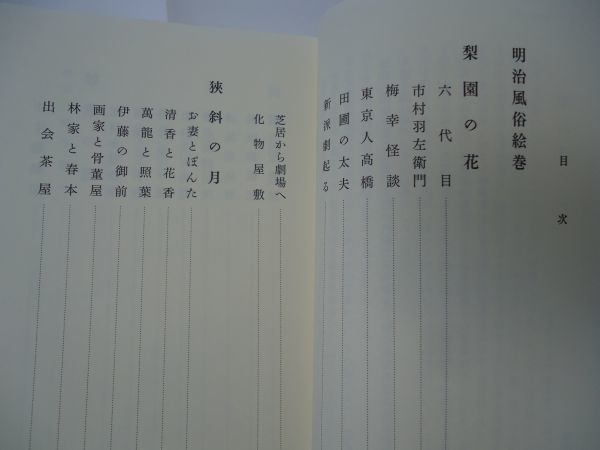 目次
明治風俗絵巻
梨園の花
六代目
市村羽左衛門
梅幸怪談
東京人高橋
田圃の太夫
新派劇起る
芝居から劇場へ
化物屋敷
狭斜の月
お妻とぽんた
清香と花香
萬龍と照葉
伊藤の御前
画家と骨董屋
林家と春本
出会茶屋